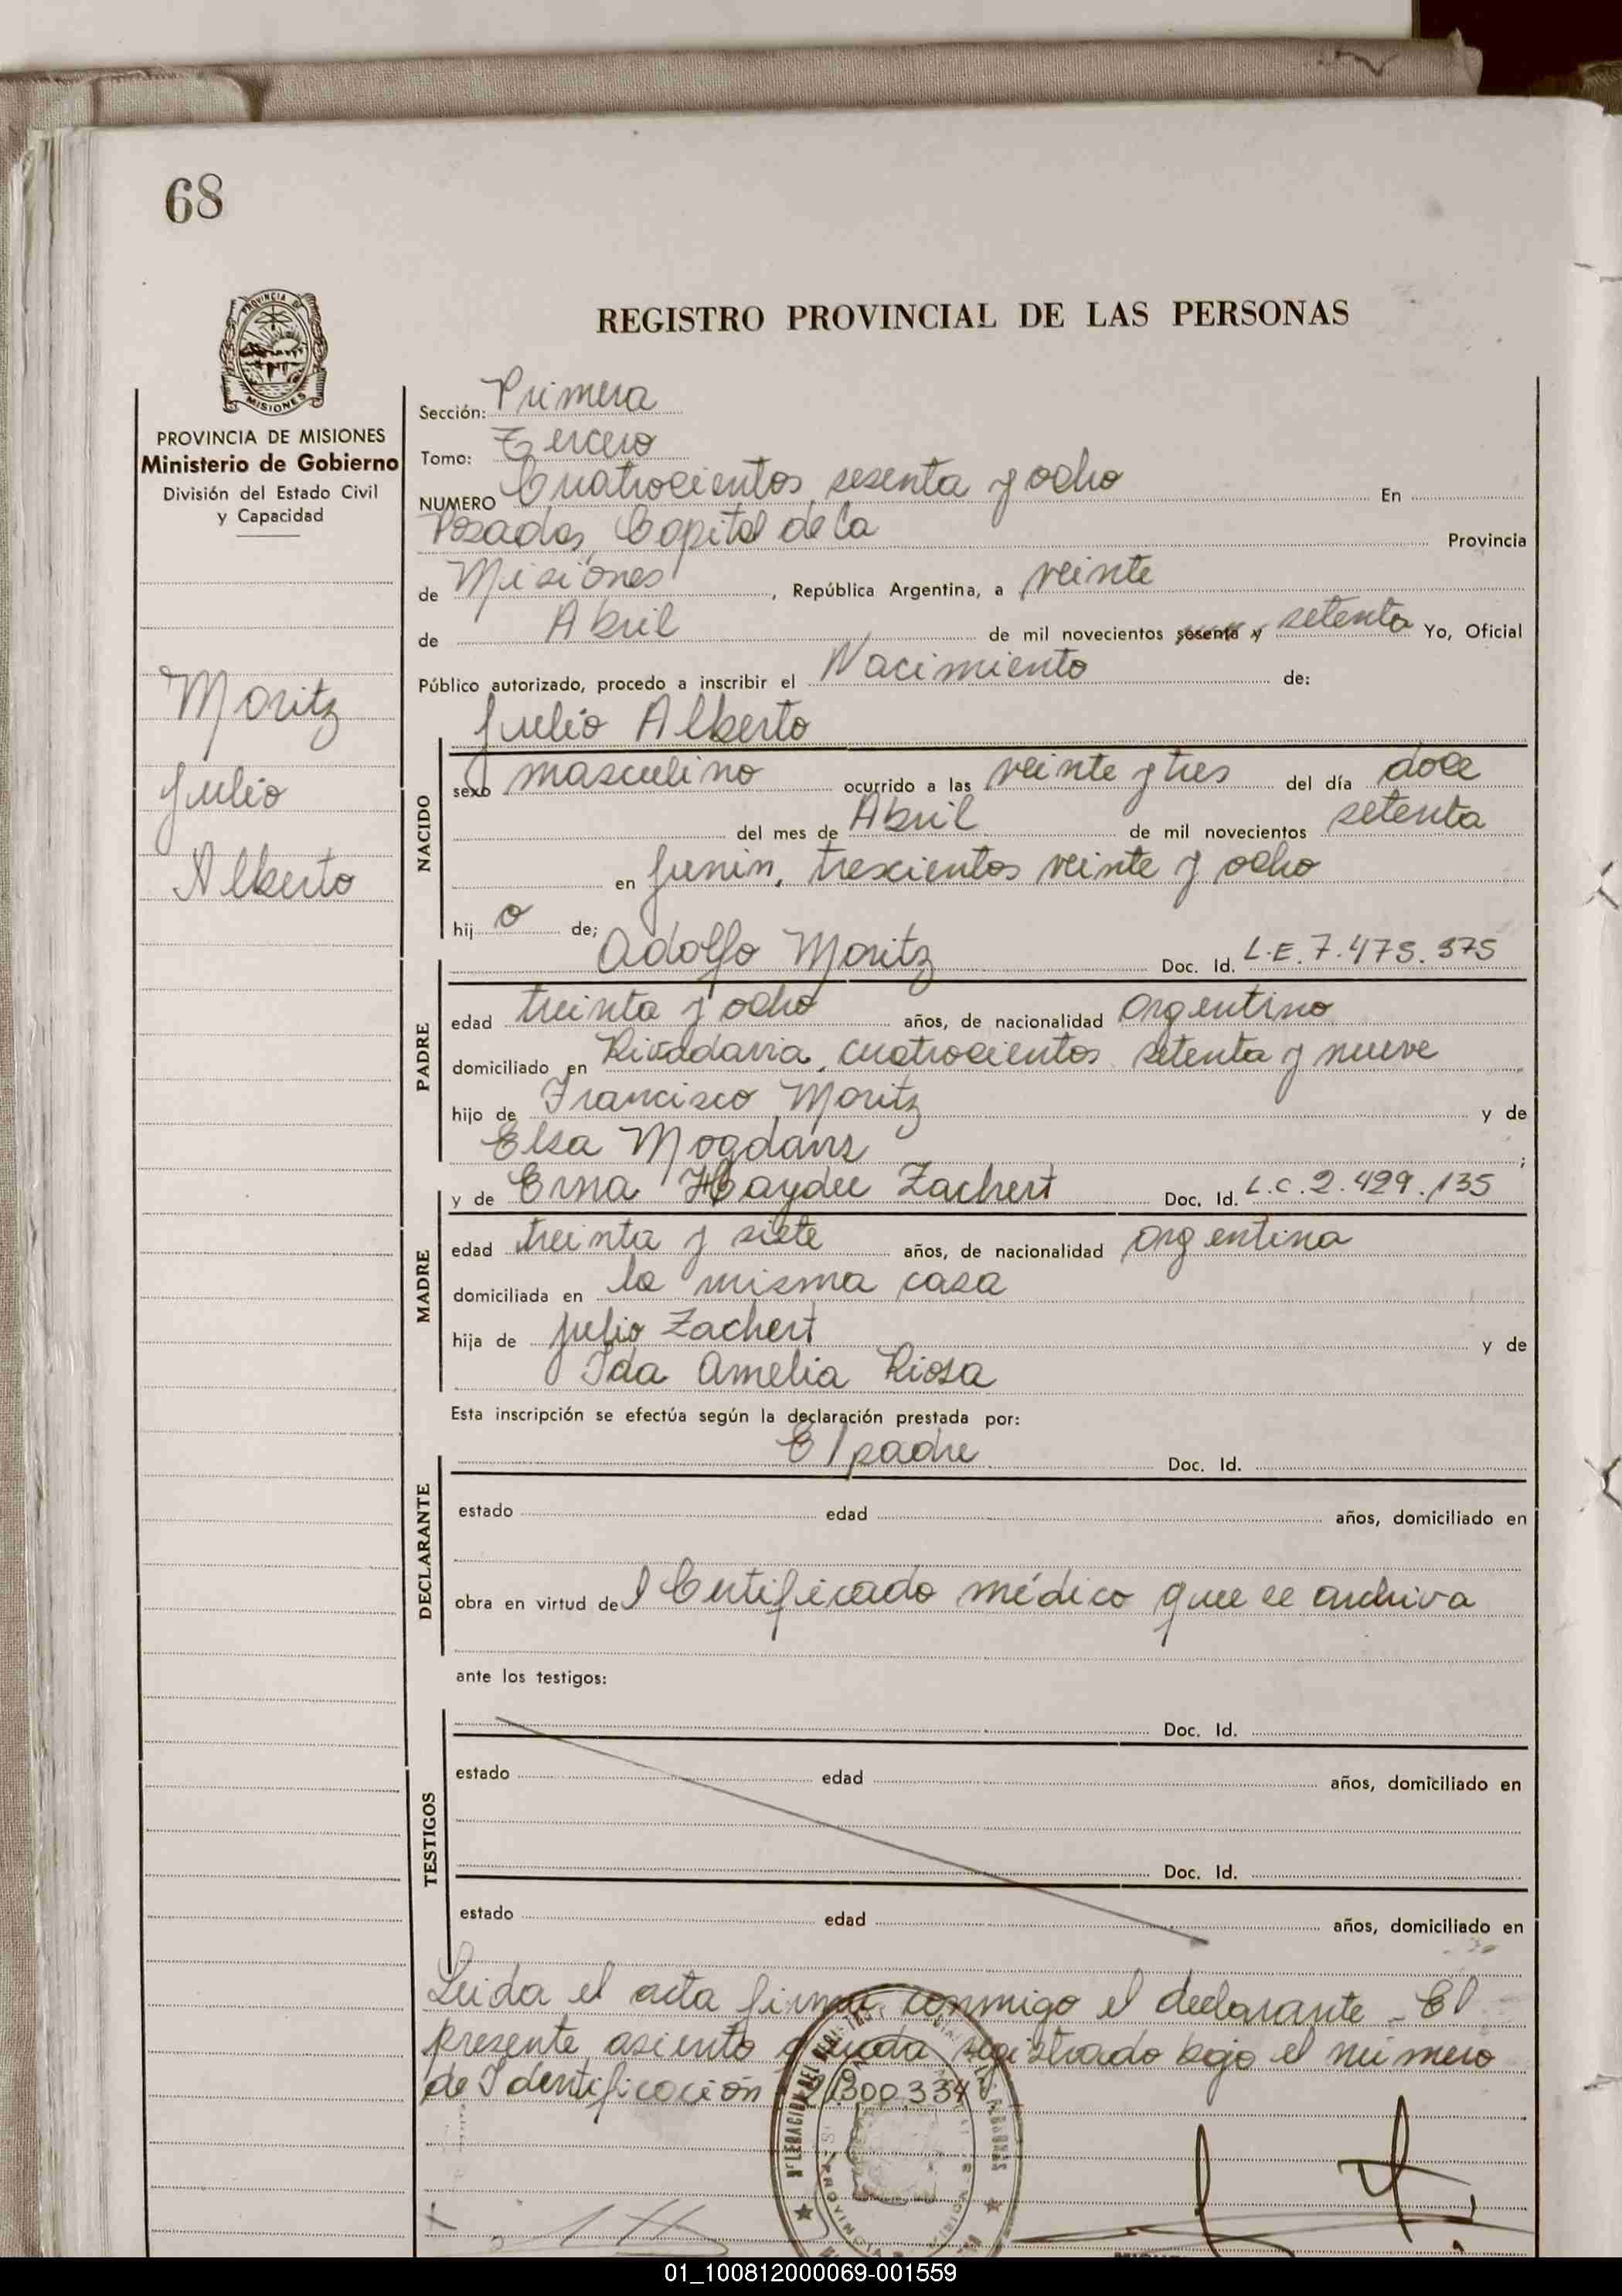 68
PROVINCIA DE
MISIONES
REGISTRO PROVINCIAL DE LAS PERSONAS
PROVINCIA DE MISIONES
Ministerio de Gobierno
División del Estado Civil
y Capacidad
Moritz
Julio
Alberto
Sección: Primera
Tomo: Tercero
NUMERO Cuatrocientos sesenta y ocho En
Posadas, Capital de la Provincia
de Misiones, República Argentina, a veinte
de Abril de mil novecientos sesenta y setenta Yo, Oficial
Público autorizado, procedo a inscribir el Nacimiento de:
Julio Alberto
NACIDO
sexo masculino ocurrido a las veinte y tres del día doce
del mes de Abril de mil novecientos setenta
en Junin, trescientos veinte y ocho
hijo de;
Adolfo Moritz Doc. Id. L.E. 7.475.375
PADRE
edad treinta y ocho años, de nacionalidad argentino
domiciliado en Rivadavia, cuatrocientos setenta y nueve
hijo de Francisco Moritz y de
Elsa Mogdans ;
MADRE
y de Erna Haydee Zachert Doc. Id. L.C. 2.429.135
edad treinta y siete años, de nacionalidad argentina
domiciliada en la misma casa
hija de Julio Zachert y de
Ida Amelia Riosa
Esta inscripción se efectúa según la declaración prestada por:
DECLARANTE
El padre Doc. Id.
estado edad años, domiciliado en
obra en virtud del Certificado médico que se archiva
ante los testigos:
TESTIGOS
Doc. Id.
estado edad años, domiciliado en
Doc. Id.
estado edad años, domiciliado en
Leida el acta firma conmigo el declarante - El
presente asiento queda registrado bajo el número
de Identificación 21.300.334
01_100812000069-001559